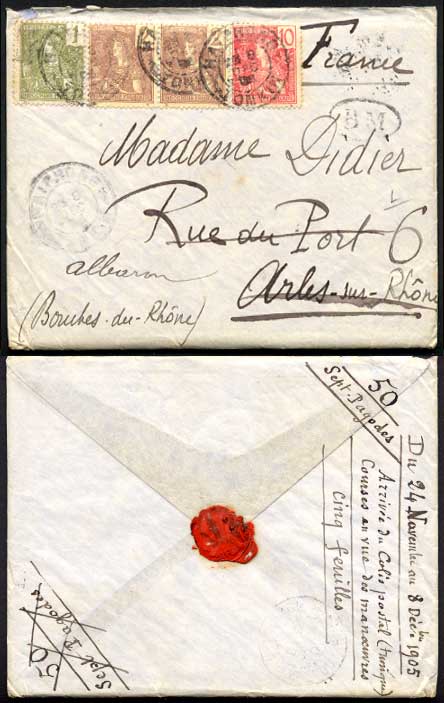 France
10
BM
Madame Didier
Rue du Port 6
Arles-sur-Rhône
albaron
(Bouches-du-Rhône)
50
Sept Pagodes
Du 24 Novembre au 8 Débre 1905
Arrivée du Colis postal (tunique)
Courses en vue des manœuvres
cinq feuilles
Sept Pagodes
50